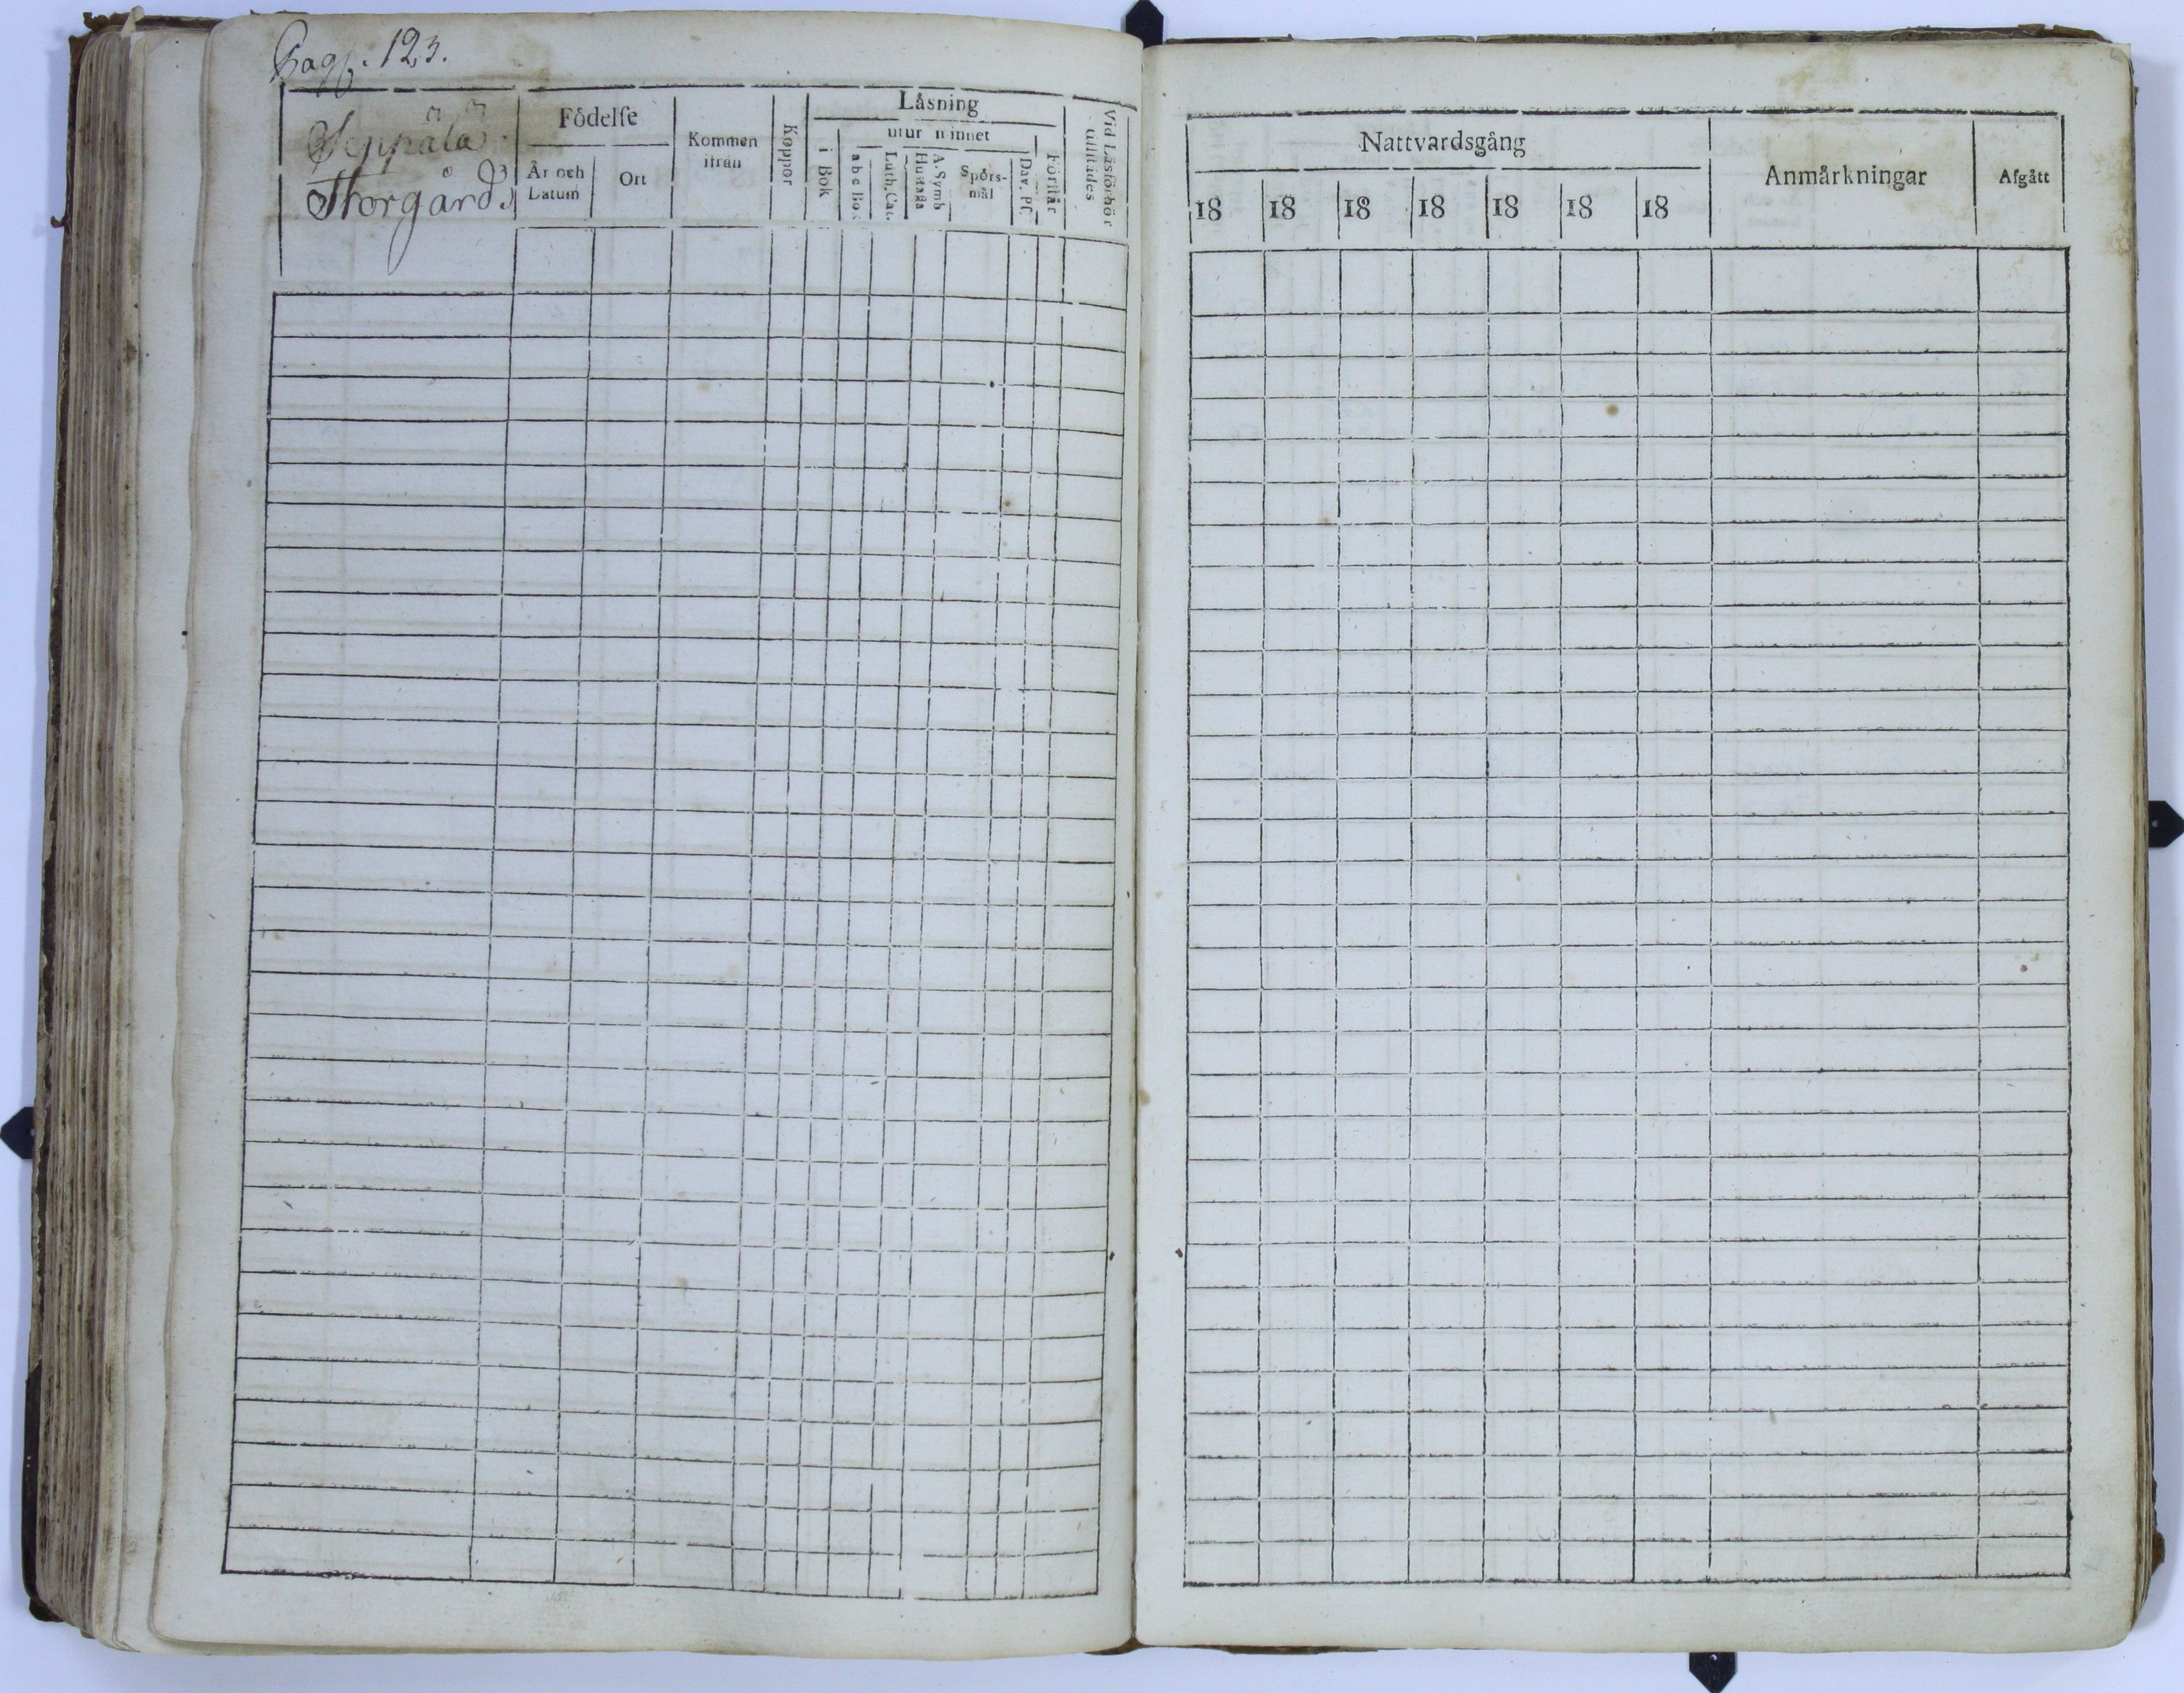 Pag. 123.
Seppälä
Storgård.
Födelse
År och Datum
Ort
Kommen ifrån
Koppor
Låsning
i Bok
utur minnet
a b c Bok
Luth. Cat.
Hustafla
A. Symb
Spörs-
mål
Dav. Ps.
Förstår
Vid Läsförhör
Nattvardsgång
18 18 18 18 18 18 18
Anmårkningar
Afgått